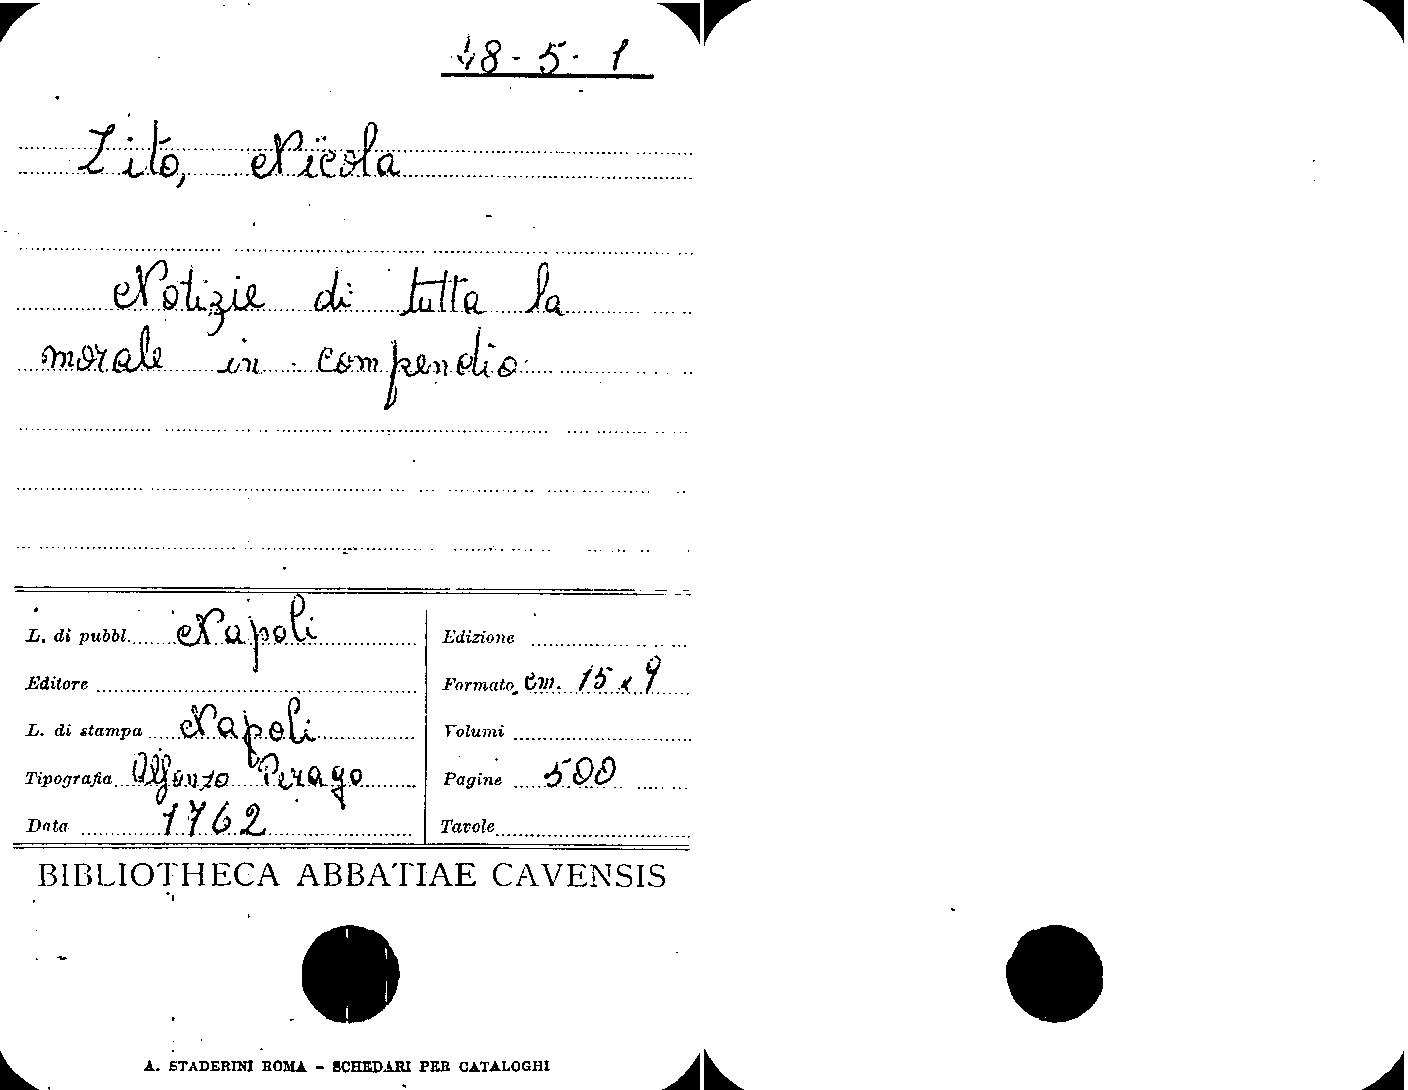 48-5-1
Zito, Nicola
Notizie di tutta la
morale in compendio
L. di pubbl. Napoli
Editore
L. di stampa Napoli
Tipografia Alfonzo Perago
Data 1762
Edizione
Formato cm. 15 x 9
Volumi
Pagine 500
Tavole
BIBLIOTHECA ABBATIAE CAVENSIS
A. STADERINI ROMA - SCHEDARI PER CATALOGHI